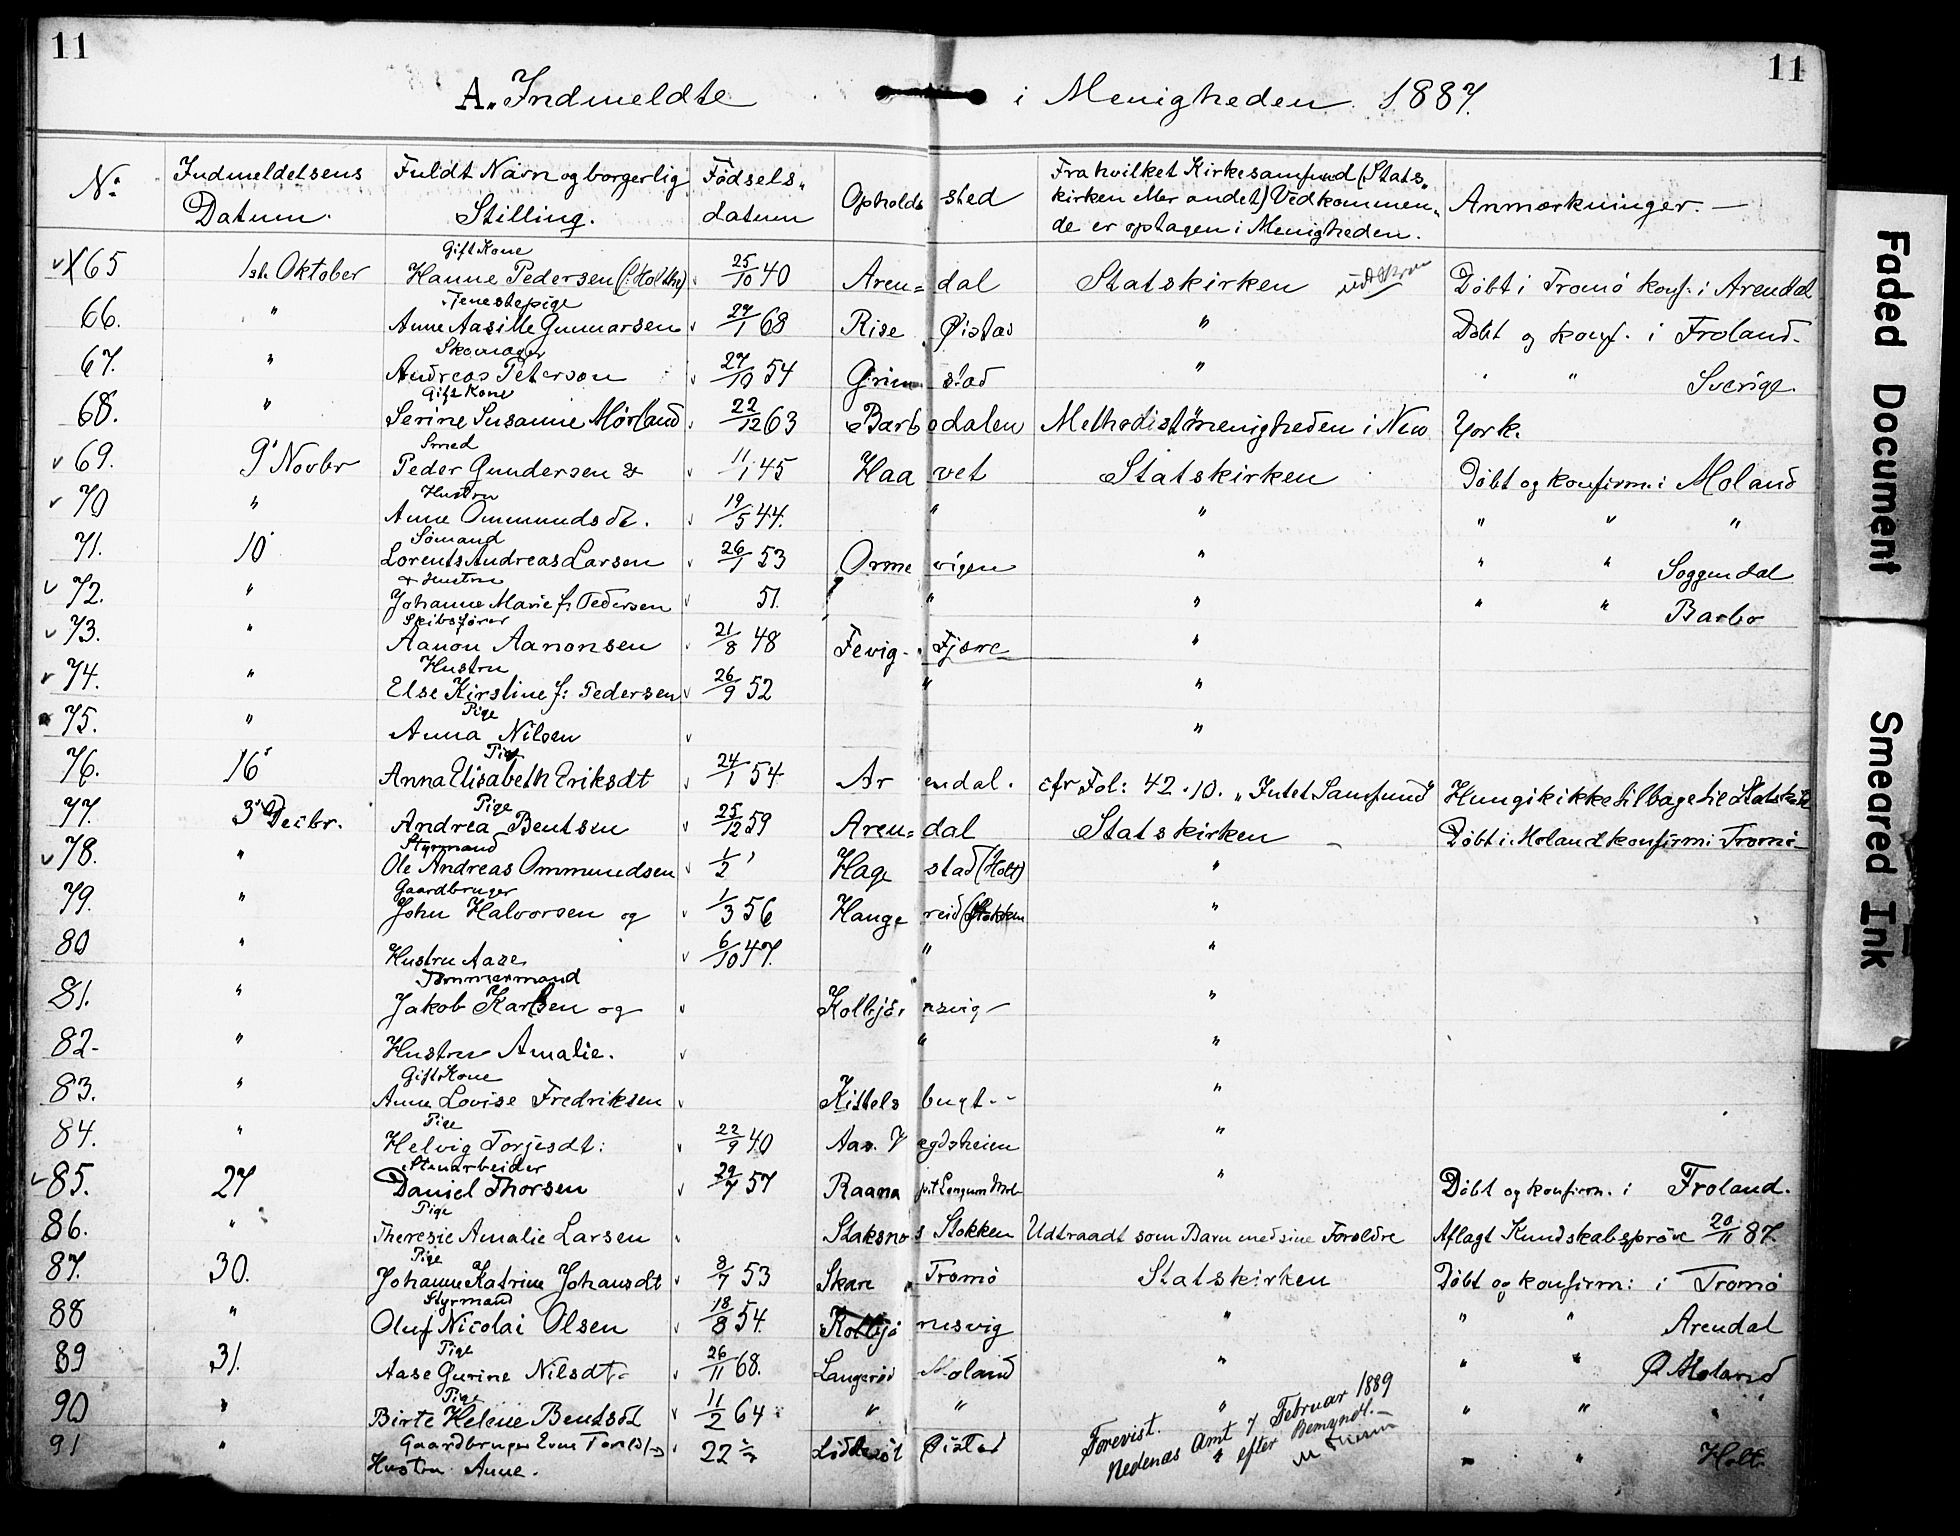 11 11
A. Indmeldte i Menigheden 1887.
No Indmeldelsens Datum. Fuldt Navn og borgerlig Stilling. Fødsels datum Opholdssted Fra hvilket Kirkesamfund (Stats kirken eller andet) Vedkommen de er optagen i Menigheden. Anmærkninger. —
Gift Kone
65 1ste Oktober Hanne Pedersen (f: Holthe) 25/10 40 Aren= dal Statskirken Døbt i Tromø konf. i Arendal
Tenestepige
66. " Anne Aasille Gunnarsen /1 68 Rise Øistad " Døbt og konf. i Froland.
Skomager
67. " Andreas Peterson 27/10 54 Grim stad " " " Sverige.
Gift Kone
68. " Serine Susanne Mørland 22/12 63 Barb odalen Methodistmenigheden i New York.
Smed
69. 9' Novbr Peder Gundersen & 11/1 45 Haa vet Statskirken Døbt og konfirm. i Moland
Hustru
70 " Anne Ommundsdt. 19/5 44. " " " " "
Sømand
71. 10' Lorents Andreas Larsen 26/1 53 Orme vigen " " " Soggendal
& Hustru
72. " Johanne Marie f: Pedersen 51. " " " " Barbo
Skibsfører
73. " Aanon Aanonsen 21/8 48 Fevig - Fjære "
Hustru
74. " Else Kirstine f: Pedersen 26/9 52 " "
Pige
75. " Anna Nilsen "
Pige
76. 16' Anna Elisabeth Eriksdt 24/1 54 Ar endal. cfr Fol: 42.10. „Intet Samfund" Hun gik ikke tilbage til Statskirk
Pige
77. 3' Decbr. Andrea Bentsen 25/12 59 Aren= dal Statskirken Døbt i Moland konfirm: Tromø
Styrmand
78. " Ole Andreas Ommundsen 1/2 Hage stad (Holt) "
Gaardbruger
79. " John Halvorsen og 1/3 56 Hauge reid (Stokken "
80 " Hustru Aase 6/10 47. " "
Tømmermand
81. " Jakob Karlsen og Kolbjø rnsvig "
82 " Hustru Amalie. " "
Gift Kone
83. " Anne Lovise Fredriksen Kittels bugt - "
Pige
84. " Helvig Torjesdt: 22/9 40 Aas. V egdsheien "
Stenarbeider
85. 27 Daniel Thorsen 29/7 57 Raana " Døbt og konfirm. i Froland.
Pige
86. " Theresie Amalie Larsen Staksnes Stokken Udtraadt som Barn med sine Forældre Aflagt Kundskabsprøve 20/11 87.
Pige
87. 30. Johanne Katrine Johansdt 8/7 53 Skare Tromø Statskirken Døbt og konfirm: i Tromø
Styrmand
88 " Oluf Nicolai Olsen 18/8 54. Kolbjø rnsvig " " " Arendal
Pige
89 31. Aase Gurine Nilsdt 26/11 68. Langerød Moland " " " Ø Moland
Pige
90 " Birte Helene Bentsdt 11/2 64 " " " " " "
91 " Gaardbruger 22 Øistad " " Holt.
Hustru Anne.
Forevist.
Nedenæs Amt 7 Februar 1889
" efter Bemyndl.
Faded Document
Smeared Ink